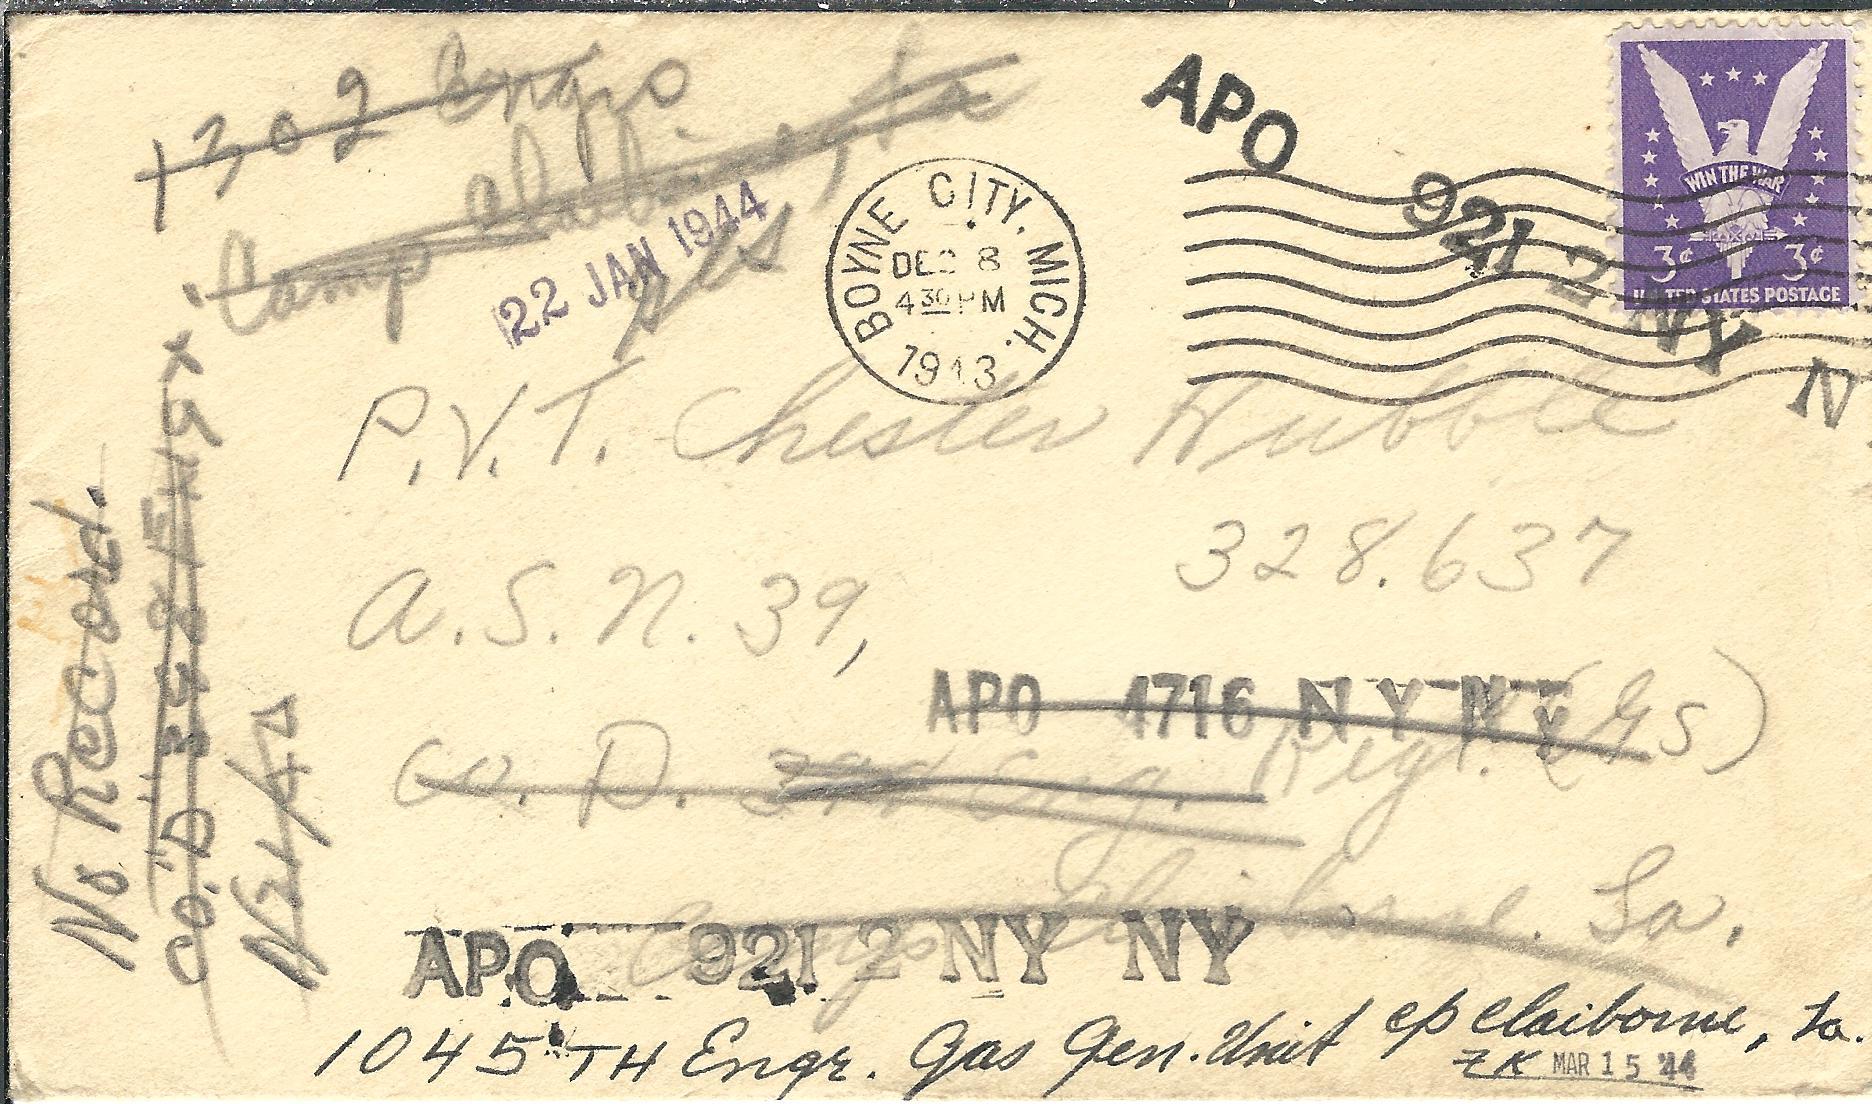 1302 Engrs
Camp Claiborne, La
22 JAN 1944
BOYNE CITY, MICH.
DEC 8
4 30 PM
1943
APO 9212 NY N
WIN THE WAR
3¢ 3¢
UNITED STATES POSTAGE
P.V.T. Chester Hubble
A.S.N. 39, 328.637
APO 4716 N Y N Y
Co. D. Eng. Regt. (GS)
Camp Claiborne. La.
APO 9212 NY NY
1045 TH Engr. Gas Gen. Unit Cp Claiborne, La.
ZK MAR 15 '44
No Record.
Co. "D"